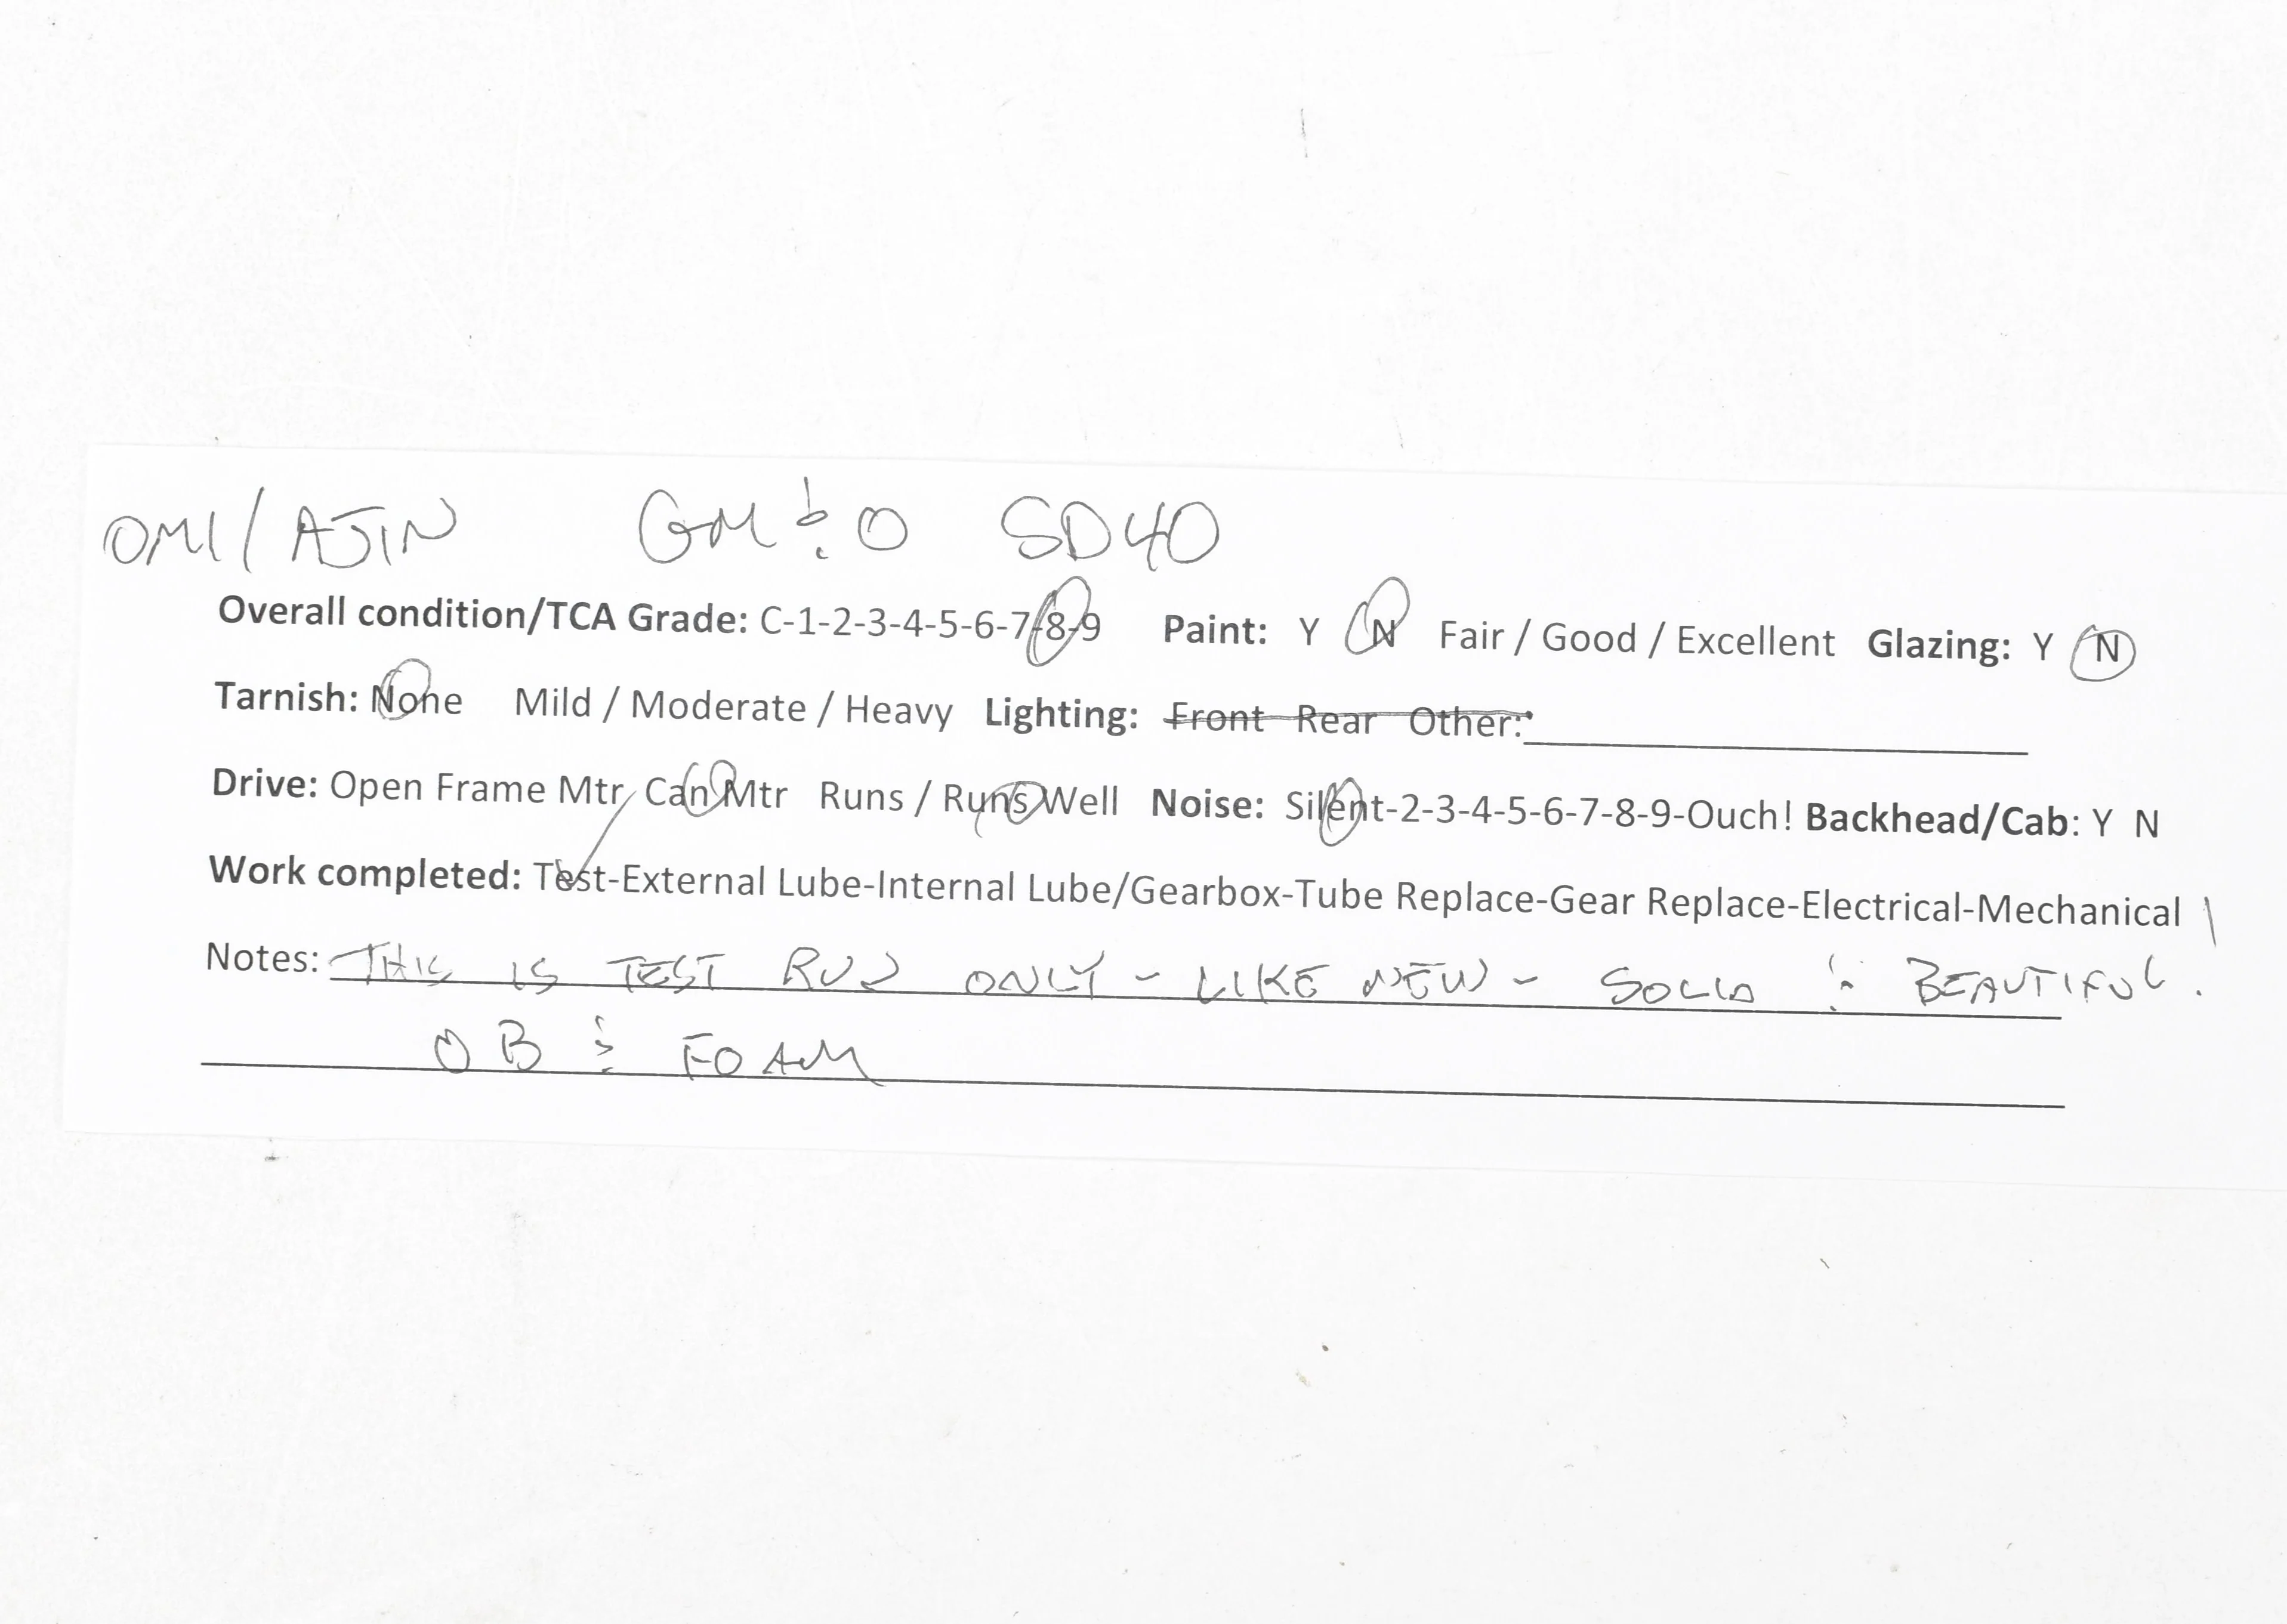 OMI/AJIN GM&O SD40
Overall condition/TCA Grade: C-1-2-3-4-5-6-7-8-9 Paint: Y N Fair / Good / Excellent Glazing: Y N
Tarnish: None Mild / Moderate / Heavy Lighting: Front Rear Other:
Drive: Open Frame Mtr Can Mtr Runs / Runs Well Noise: Silent-2-3-4-5-6-7-8-9-Ouch! Backhead/Cab: Y N
Work completed: Test-External Lube-Internal Lube/Gearbox-Tube Replace-Gear Replace-Electrical-Mechanical
Notes: THIS IS TEST RUN ONLY - LIKE NEW - SOLID & BEAUTIFUL.
OB & FOAM